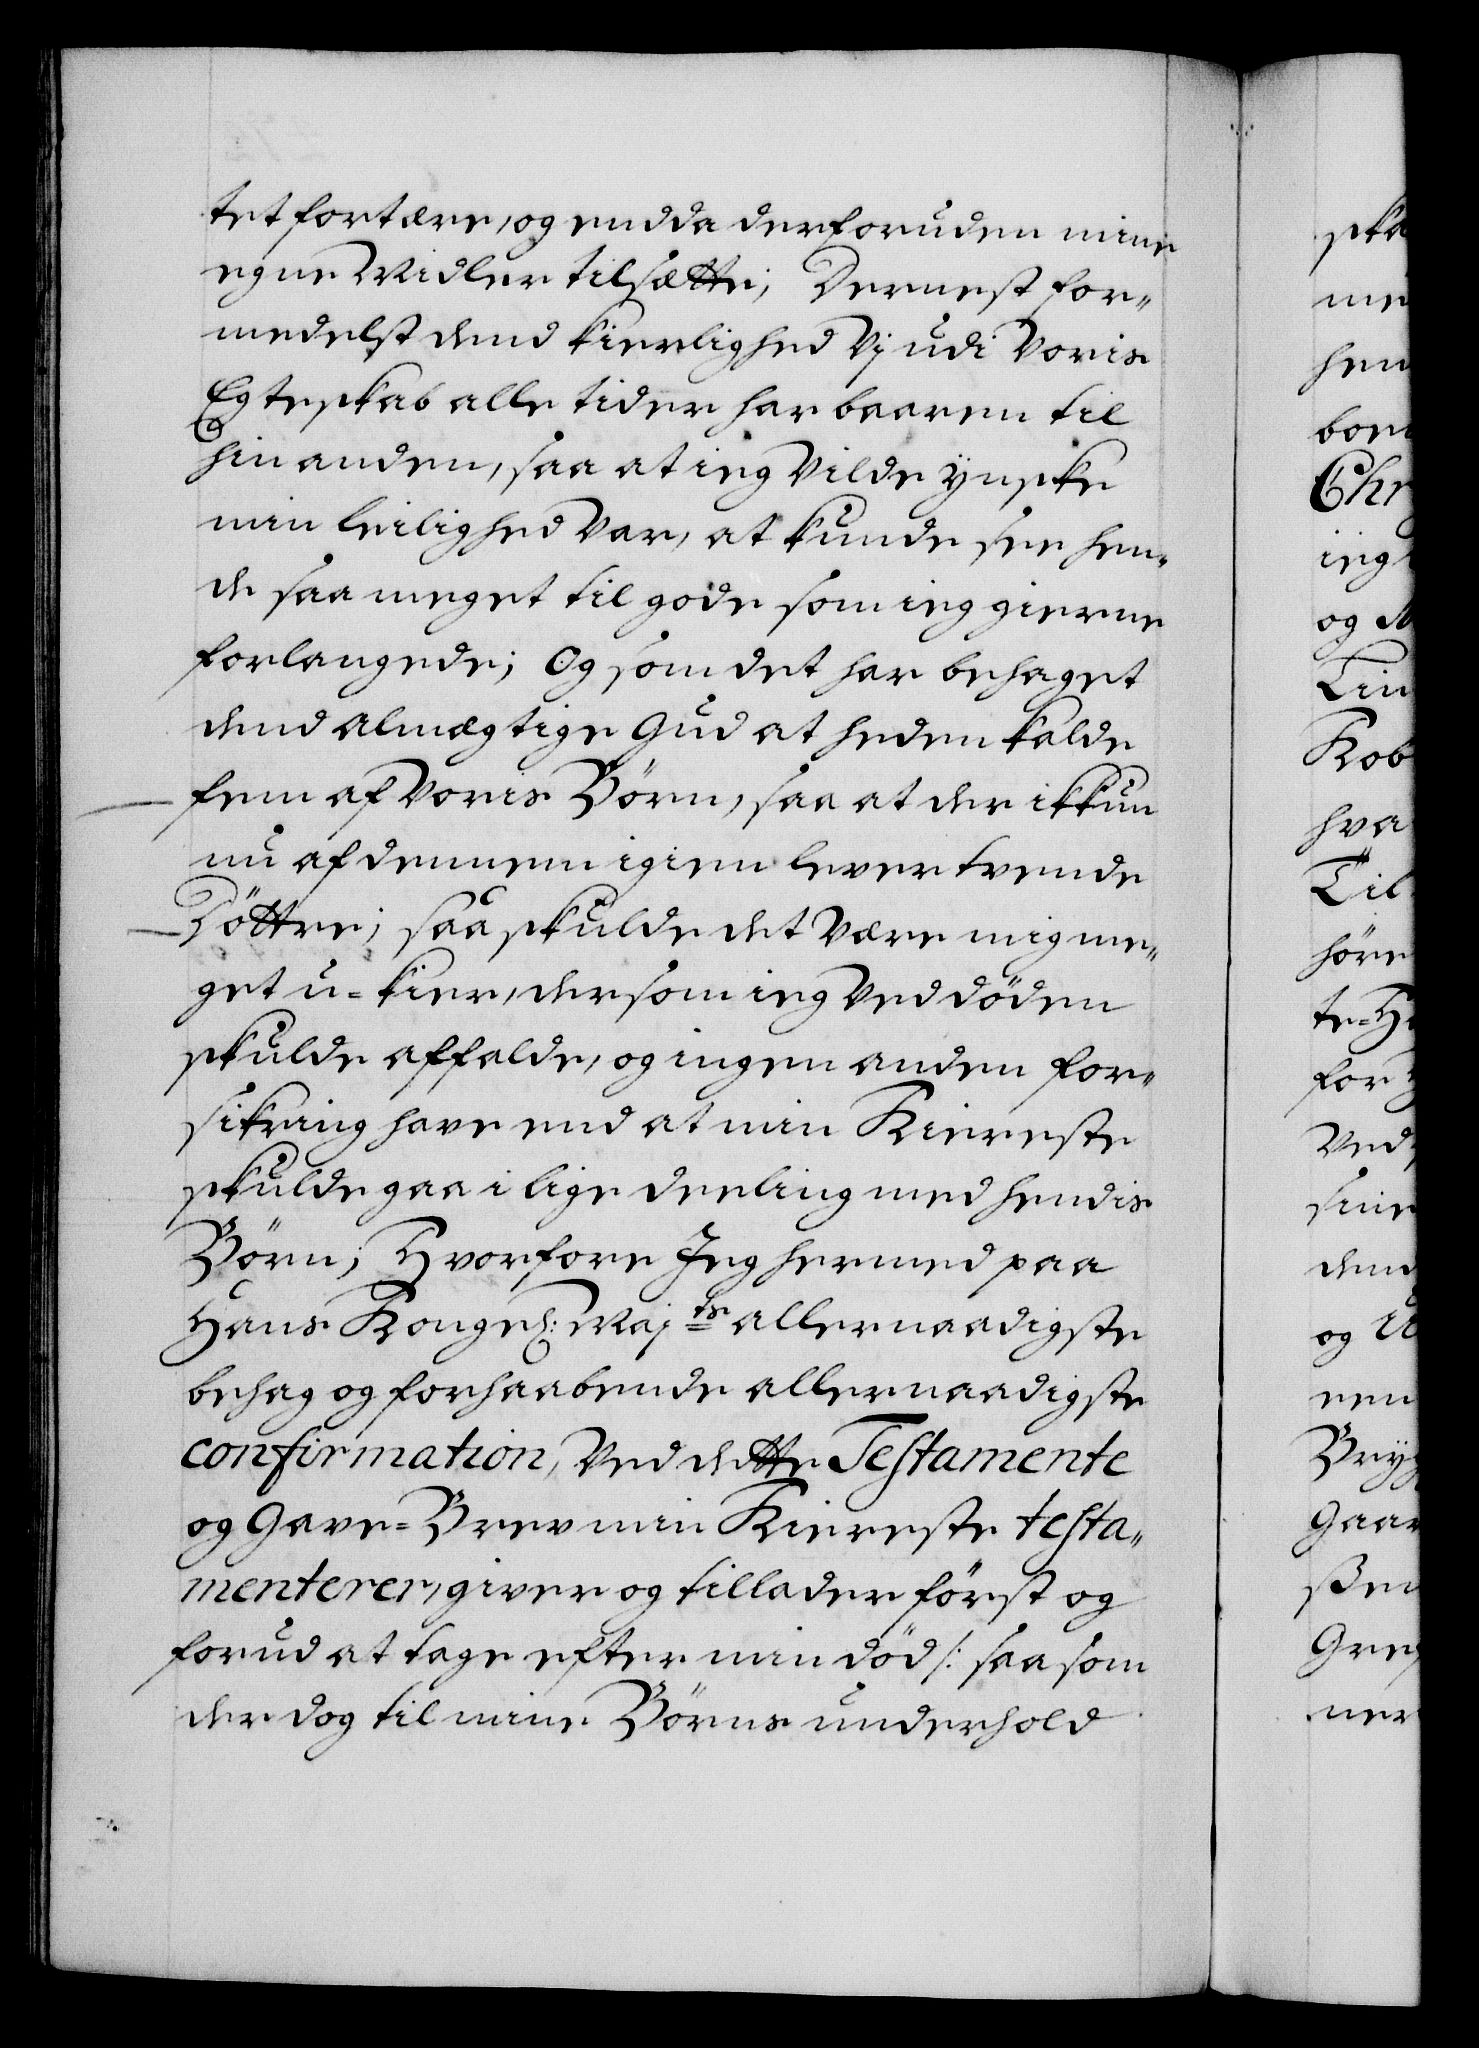 tet fortære, og endda derforuden mine
egne Midler tilsætte; Dernest for„
medelst dend kierlighed Vj udi Voris
Egteskab alle tider har baaren til
hinanden, saa at ieg Vilde ÿnske
min leilighed Var, at kunde see hen„
de saa meget til gode som ieg gierne
forlangede; Og som det har behaget
dend Almægtige Gud at heden kalde
fem af Voris Börn, saa at der ikkun
nu af dennem igien lever trende
Döttre; saa skulde det Være mig me„
get u=kier, dersom ieg Ved döden
skulde affalde, og ingen anden for„
sikring have end at min Kiereste
skulde gaa i lige deeling med hendis
Börn; Hvorfore Jeg hermed paa
Hans Kongel: Maj:ts allernaadigste
behag og forhaabende allernaadigste
confirmation, Ved dette Testamente
og Gave=Brev min Kiereste testa„
menterer, giver og tillader först og
forud at tage efter min död /: saasom
der dog til mine Börns underhold
ska
me
hen
bor
Chr
ieg
og
Tin
Kob
hva
Til
höre
te=H
for
Ved
sine
dend
og
een
Bryg
Gaar
ßen
Greg
ner